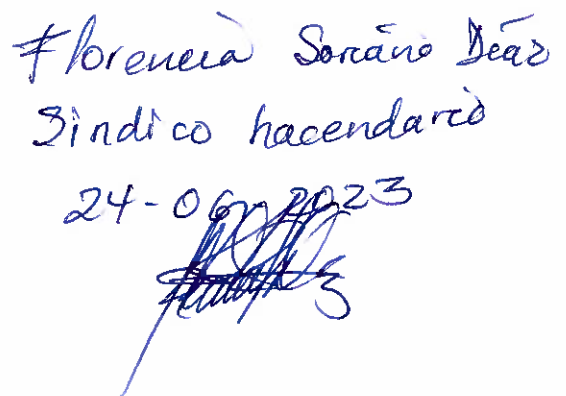 Florencia Soriano Díaz
Sindico hacendario
24-06-2023